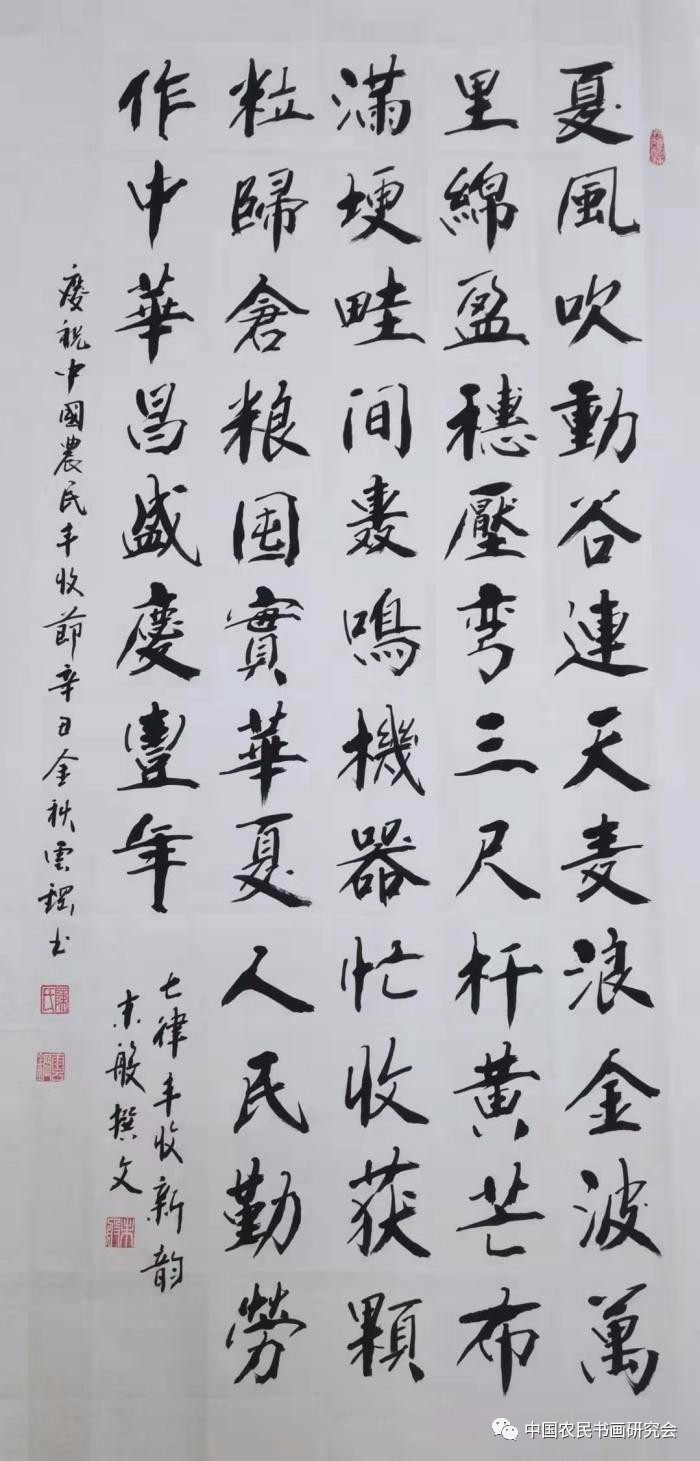 夏風吹動谷連天麦浪金波萬
里綿盈穗壓弯三尺杆黄芒布
滿埂畦间轰鳴機器忙收获顆
粒歸倉粮囤實華夏人民勤勞
作中華昌盛慶豐年
七律丰收新韵
朱般撰文
慶祝中國農民丰收節辛丑金秋雲书
中国农民书画研究会